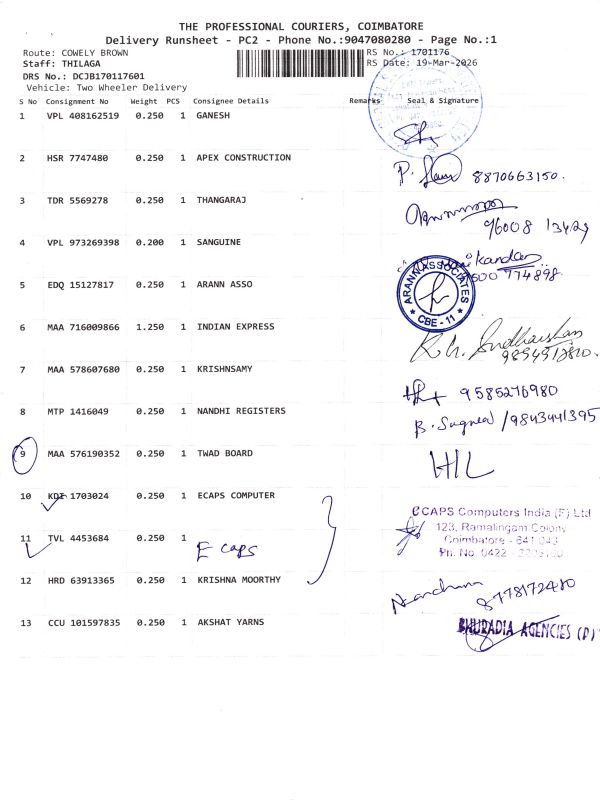 THE PROFESSIONAL COURIERS, COIMBATORE
Delivery Runsheet - PC2 - Phone No.:9047080280 - Page No.:1
Route: COWELY BROWN
RS No.: 1701176
Staff: THILAGA
RS Date: 19-Mar-2026
DRS No.: DCJB170117601
Vehicle: Two Wheeler Delivery
S No Consignment No Weight PCS Consignee Details Remarks Seal & Signature
1 VPL 408162519 0.250 1 GANESH
2 HSR 7747480 0.250 1 APEX CONSTRUCTION
8870663150.
3 TDR 5569278 0.250 1 THANGARAJ
96008 13429
4 VPL 973269398 0.200 1 SANGUINE
774898
5 EDQ 15127817 0.250 1 ARANN ASSO
ARANN ASSOCIATES
CBE - 11
6 MAA 716009866 1.250 1 INDIAN EXPRESS
7 MAA 578607680 0.250 1 KRISHNSAMY
9585276980
8 MTP 1416049 0.250 1 NANDHI REGISTERS
9843441395
9 MAA 576190352 0.250 1 TWAD BOARD
10 KDI 1703024 0.250 1 ECAPS COMPUTER
eCAPS Computers India (P) Ltd
123, Ramalingam Colony
Coimbatore - 641 043
Ph. No. 0422
11 TVL 4453684 0.250 1 E caps
12 HRD 63913365 0.250 1 KRISHNA MOORTHY
8778172480
13 CCU 101597835 0.250 1 AKSHAT YARNS
BHURADIA AGENCIES (P)